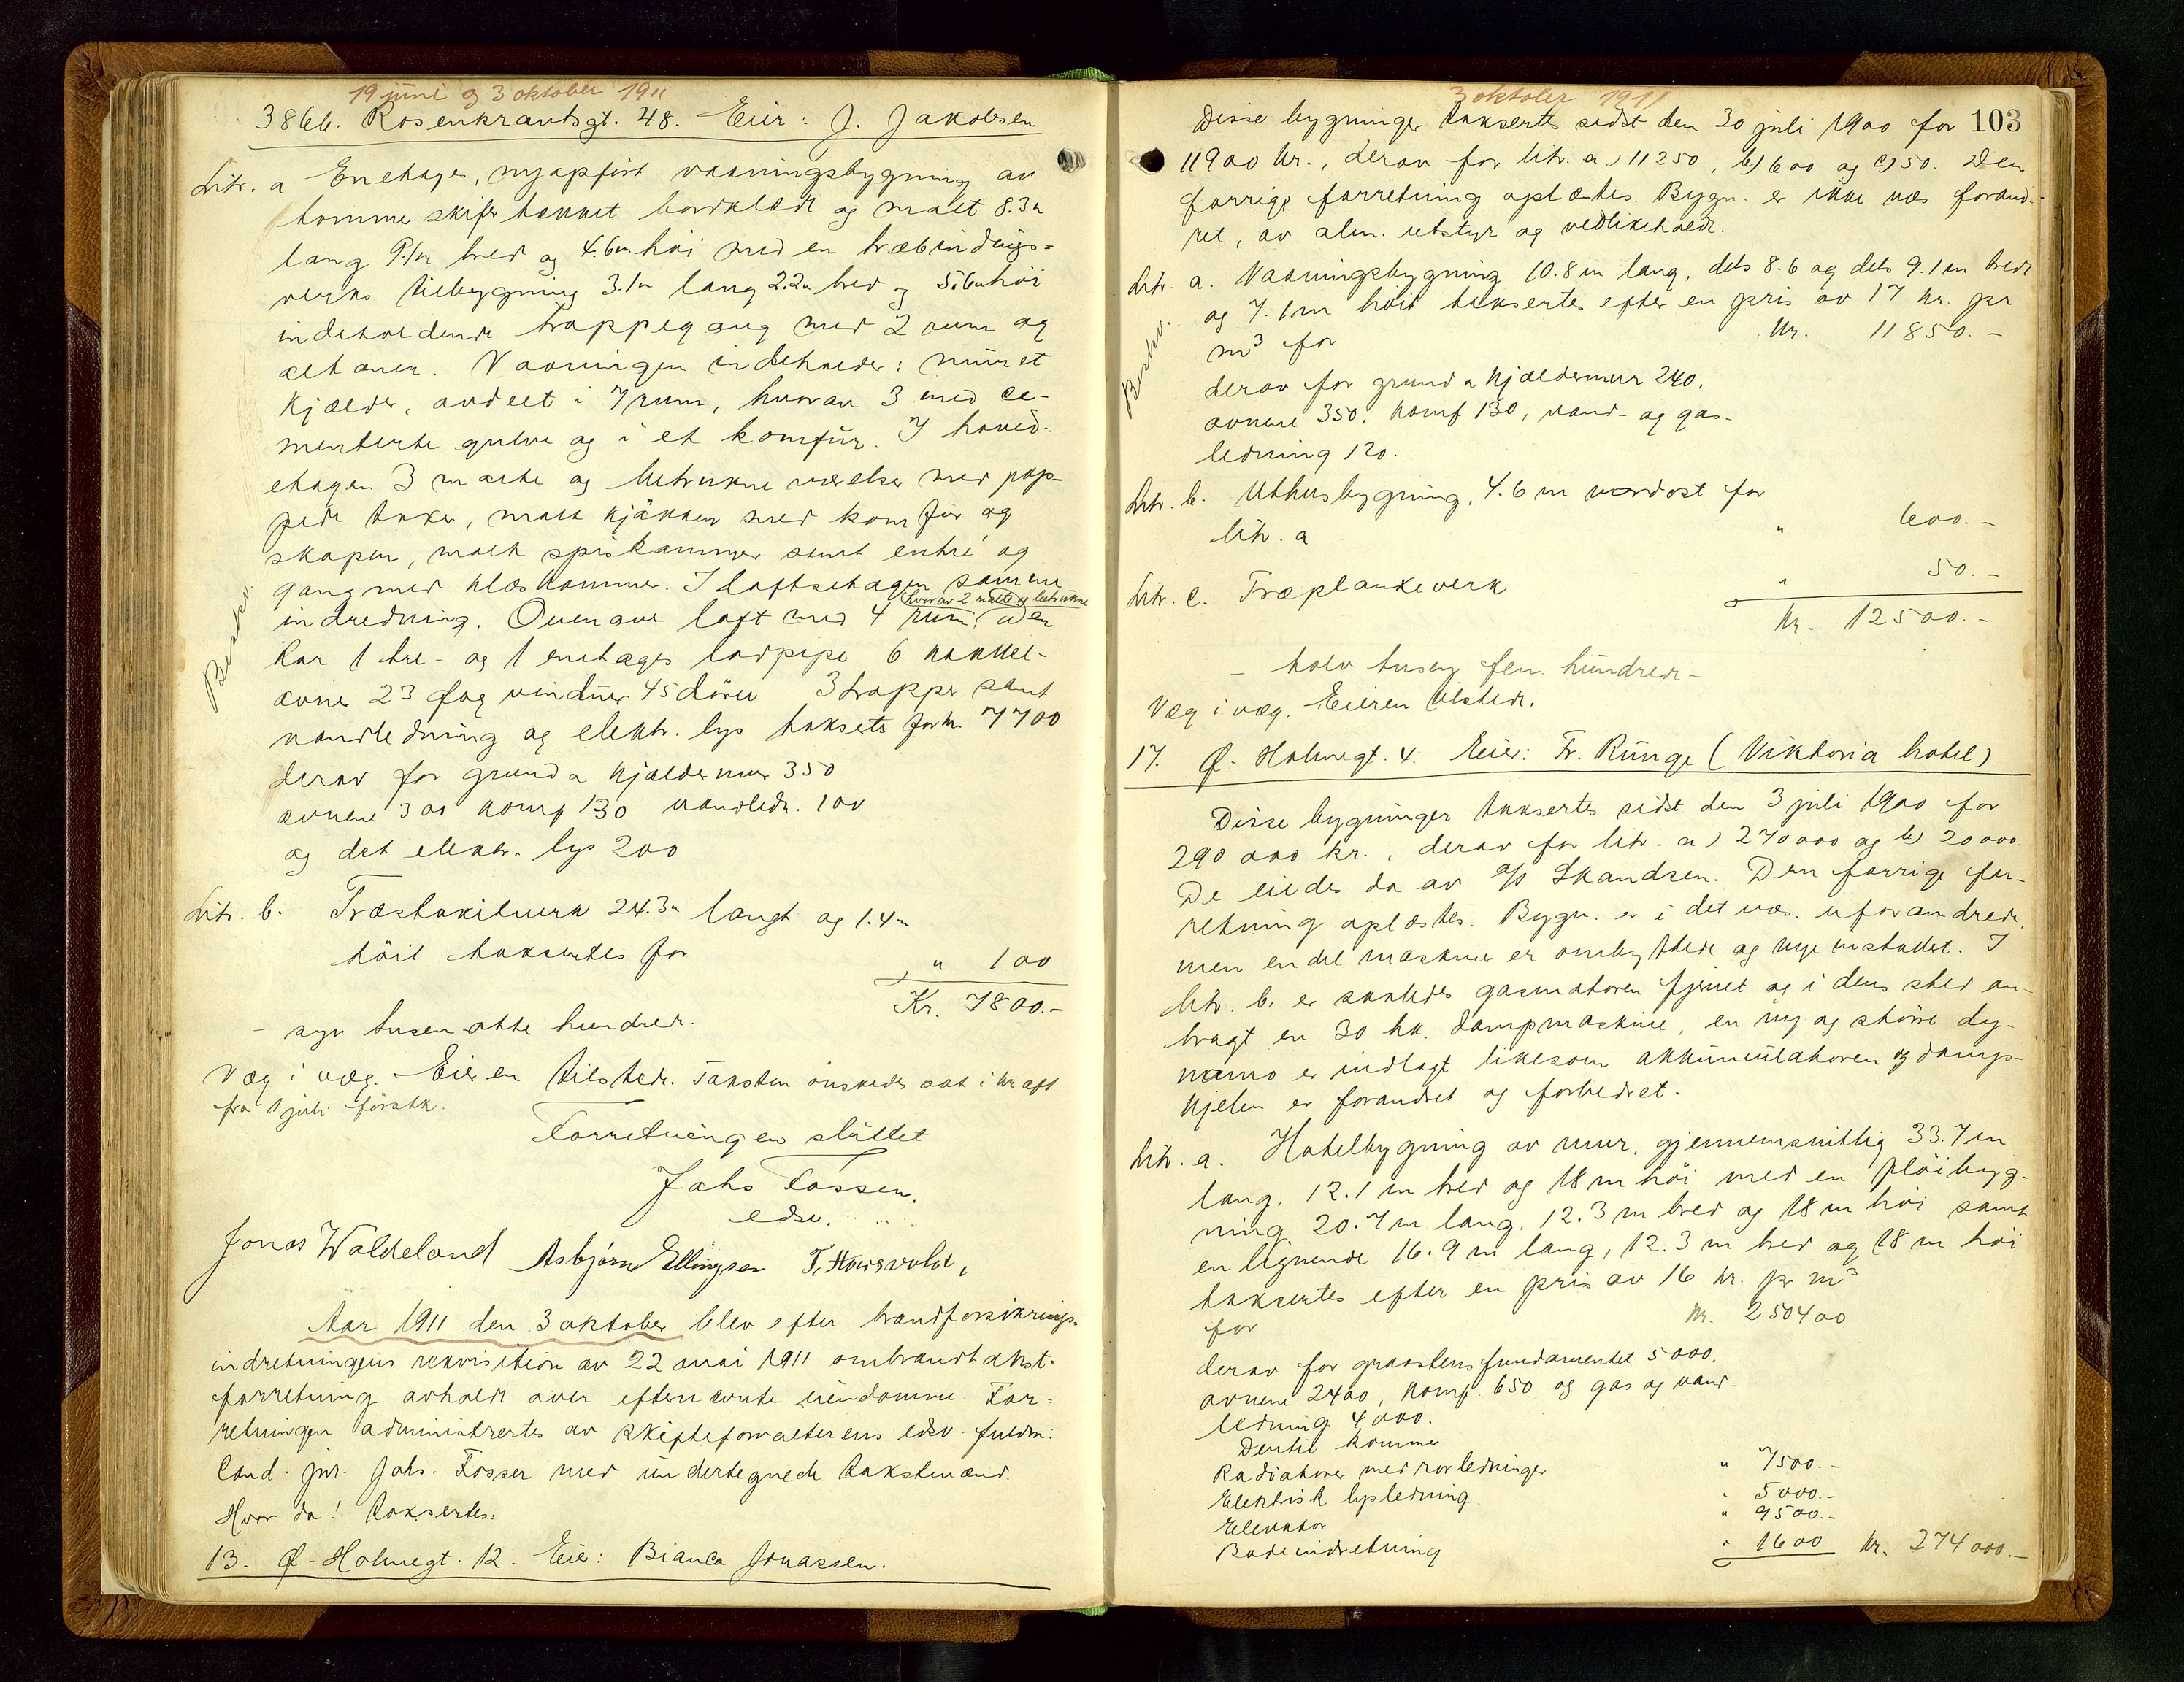 19 juni og 3 oktober 1911
386b. Rosenkrantsgt. 48. Eier: J. Jakobsen
Litr. a Enetages, nyopført vaaningsbygning av
tømmer skifertækket bordklædt og malt 8.3m
lang 9.1m bred og 4.6m høi med en træbindings-
verks tilbygning 3.1m lang 2.2m bred og 5.6m høi
indeholdende trappegang med 2 rum og
altaner. Vaaningen indeholder: muret
kjælder, avdelt i 7 rum, hvorav 3 med ce-
menterte gulve og i et komfür. I hoved-
etagen 3 malte og betrukne værelser med pap-
pede taker, malt kjøkken med komfür og
skaper, malt spiskammer samt entré og
gang med klæskammer. I loftsetagen samme
indredning. Ovenover loft med 4 rum, hvorav 2 malte og betrukne. Den
har 1 tre- og 1 enetages lodpipe 6 kakkel-
ovne 23 fag vinduer 45 dører 3 trapper samt
vandledning og elektr. lys taksertes for kr. 7700
derav for grund & kjældermur 350
ovnene 300 komf 130 vandledn. 100
og det elektr. lys 200
Beskr.
Litr. b. Træstakitverk 24.3m langt og 1.4m
høit taksertes for
" 100
Kr. 7800.-
- syv tusen otte hundrede.
Væg i væg. Eieren tilstede. Taksten ønskedes sat i kraft
fra 1 juli førstk.
Forretningen sluttet
Johs Fosser.
edsv.
Jonas Waldeland Asbjørn Ellingsen T. Housvold,
Aar 1911 den 3 oktober blev efter brandforsikrings-
indretningens rekvisition av 22 mai 1911 ombrandtakst-
forretning avholdt over efternævnte eiendomme. For-
retningen administrertes av skifteforvalterens edsv. fuldm.
Cand. jur. Johs. Fosser med undertegnede takstmænd.
Hvor da! taksertes:
13. Ø. Holmegt. 12. Eier: Bianca Jonassen.
3 oktober 1911
103
Disse bygninger taksertes sidst den 30 juli 1900 for
11900 kr., derav for litr. a) 11250, b) 600 og c) 50. Den
forrige forretning oplæstes. Bygn. er ikke væs. forand-
ret, av alm. utstyr og vedlikeholdt.
Litr. a. Vaaningsbygning 10.8 m lang, dels 8.6 og dels 9.1 m bred
og 7.1 m høi taksertes efter en pris av 17 kr. pr
m3 for
kr. 11850.-
Beskr.
derav for grund & kjældermur 240,
ovnene 350, komf 130, vand- og gas-
ledning 120.
Litr. b. Uthusbygning, 4.6 m nordost for
litr. a
" 600.-
Litr. c. Træplankeverk
" 50.-
Kr. 12500.-
- tolv tusen fem hundrede -
Væg i væg. Eieren tilstede.
17. Ø. Holmegt. 4. Eier: Fr. Runge (Viktoria hotel)
Disse bygninger taksertes sidst den 3 juli 1900 for
290000 kr., derav for litr. a) 270000 og b) 20000.
De eiedes da av A/S Skandsen. Den forrige for-
retning oplæstes. Bygn. er i det væs. uforandrede,
men endel maskiner er ombyttede og nye installert. I
litr. b. er saaledes gasmotoren fjernet og i dens sted an-
bragt en 30 hk. dampmaskine, en ny og større dy-
namo er indlagt likesom akkumulatoren og damp-
kjelen er forandret og forbedret.
Litr. a. Hotelbygning av mur, gjennemsnitlig 33.7 m
lang, 12.1 m bred og 18 m høi med en fløibyg-
ning 20.7 m lang, 12.3 m bred og 18 m høi samt
en lignende 16.9 m lang, 12.3 m bred og 18 m høi
taksertes efter en pris av 16 kr. pr m3
for
kr. 250400
derav for graastensfundamentet 5000.
ovnene 2400, komf. 650 og gas og vand-
ledning 4000.
Dertil kommer
Radiatorer med rørledninger " 7500.-
Elektrisk lysledning " 5000.-
Elevator " 9500.-
Badeindretning " 1600 kr. 274000.-